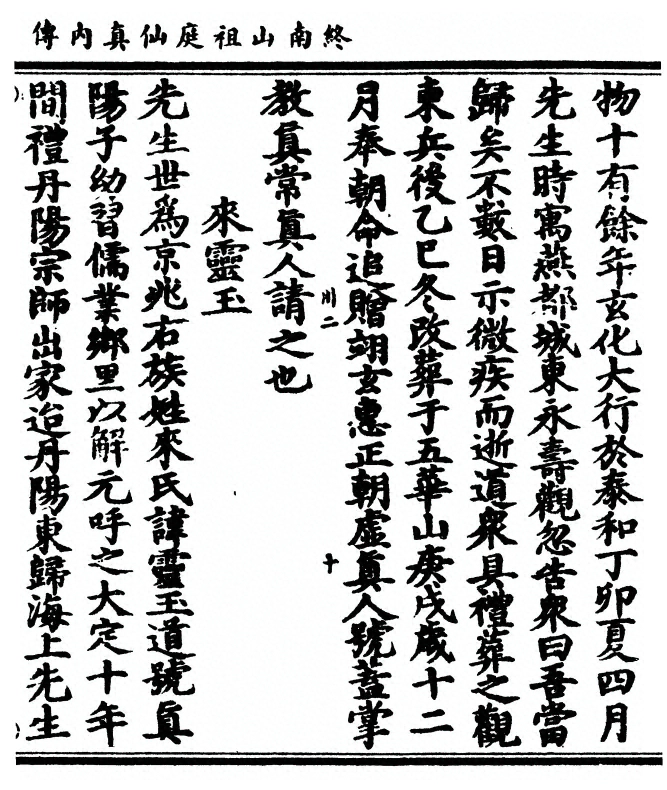 終南山祖庭仙真內傳
物十有餘年玄化大行於泰和丁卯夏四月
先生時寓燕都城東永壽觀忽告眾曰吾當
歸矣不數日示微疾而逝道眾具禮葬之觀
東兵後乙巳冬改葬于五華山庚戌歲十二
月奉朝命追贈翊玄惠正朝虛真人號蓋掌
教真常真人請之也
川二
十
來靈玉
先生世為京兆右族姓來氏諱靈玉道號真
陽子幼習儒業鄉里以解元呼之大定十年
間禮丹陽宗師出家迨丹陽東歸海上先生